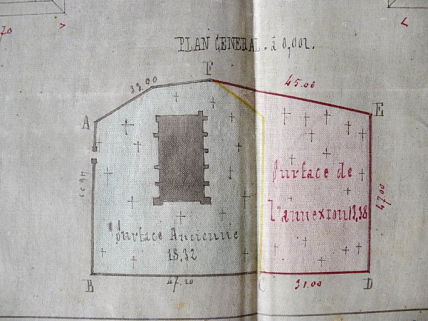 PLAN GENERAL. à 0,002.
F
45.00
A
E
Surface de
l'annexion 13,38
47.00
Surface Ancienne
18,32
B
47.20
C
31.00
D